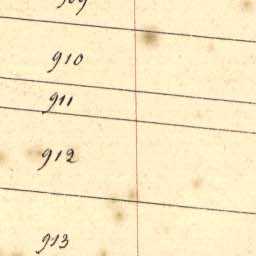 909
910
911
912
913